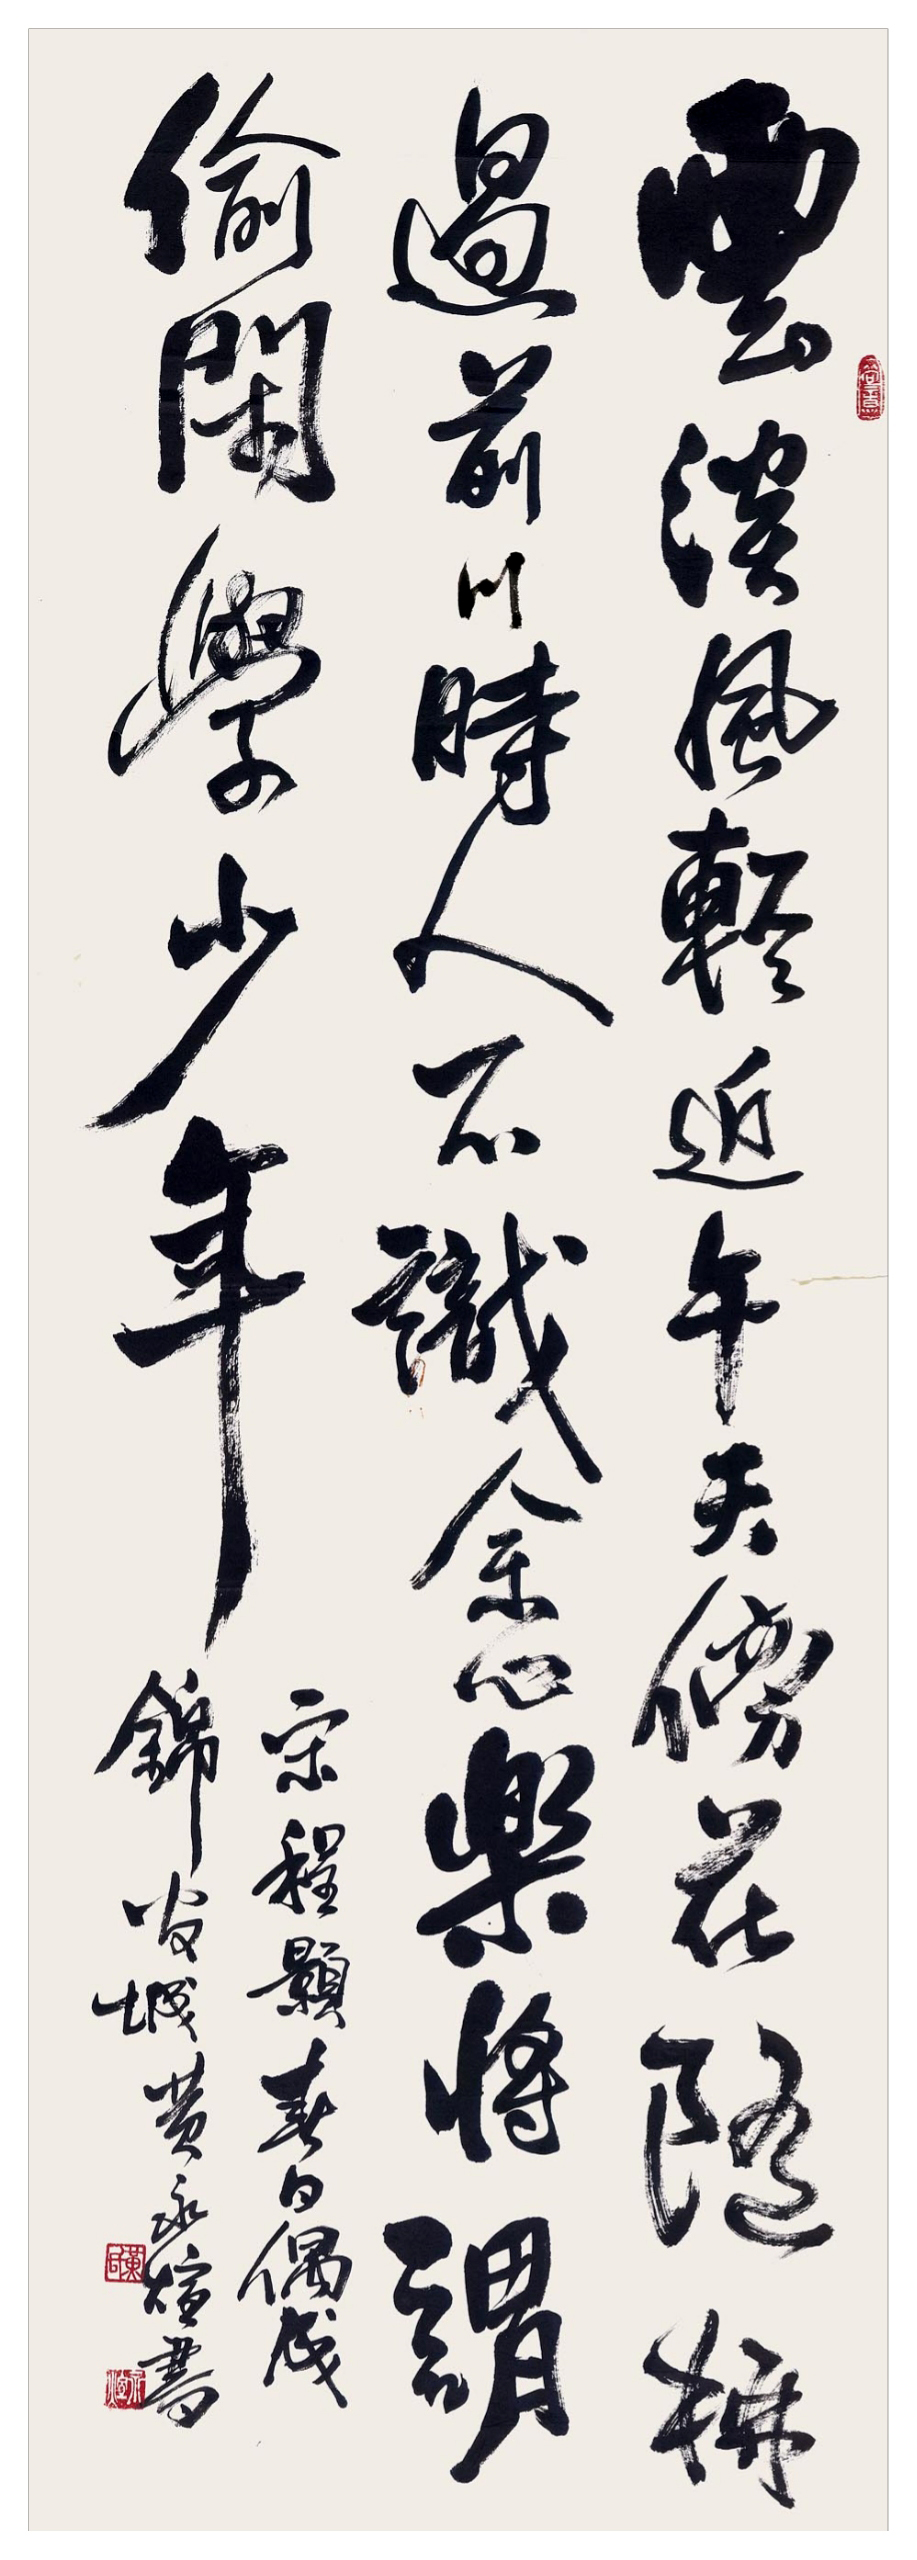 雲淡風輕近午天傍花隨柳
過前川時人不識余心樂將謂
偷閑學少年
宋程顥春日偶成
錦官城黄永煊書